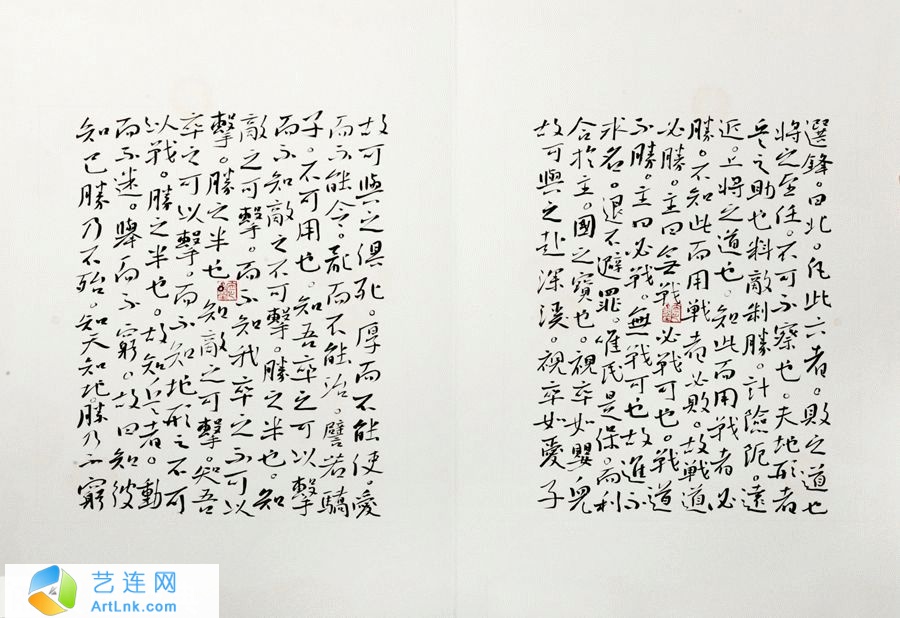 選鋒。曰北。凡此六者。敗之道也
將之至任。不可不察也。夫地形者
兵之助也料敵制勝。計險阨。遠
近。上將之道也。知此而用戰者必
勝。不知此而用戰者必敗。故戰道
必勝。主曰無戰必戰可也。戰道
不勝。主曰必戰。無戰可也故進不
求名。退不避罪。唯民是保。而利
合於主。國之寶也。視卒如嬰兒
故可與之赴深溪。視卒如愛子
故可與之俱死。厚而不能使。愛
而不能令。亂而不能治。譬若驕
子。不可用也。知吾卒之可以擊
而不知敵之不可擊。勝之半也。知
敵之可擊。而不知我卒之不可以
擊。勝之半也。知敵之可擊。知吾
卒之可以擊。而不知地形之不可
以戰。勝之半也。故知兵者。動
而不迷。舉而不窮。故曰知彼
知己勝乃不殆。知天知地。勝乃不窮
艺连网
ArtLnk.com